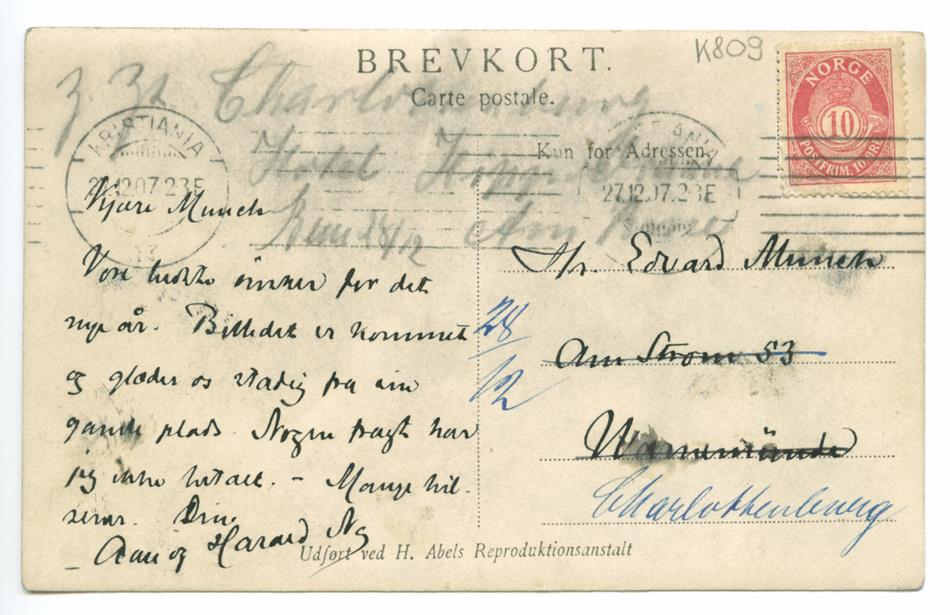 BREVKORT.
K809
Carte postale.
Charlottenburg
Kun for Adressen.
Hotel
28/12 Am
NORGE
10
POSTFRIM. 10 ØRE
KRISTIANIA
27.12.07. 2-3E
KRISTIANIA
27.12.07. 2-3E
Kjære Munch
Vore bedste ønsker for det
nye år. Billedet er kommet
og glæder os stadig fra sin
gamle plads. Nogen fragt har
jeg ikke betalt. – Mange hil-
sener. Din
Aase og Harald Ng
Hr. Edvard Munch
Am Strom 53
Warnemünde
Charlottenburg
28/12
Udført ved H. Abels Reproduktionsanstalt